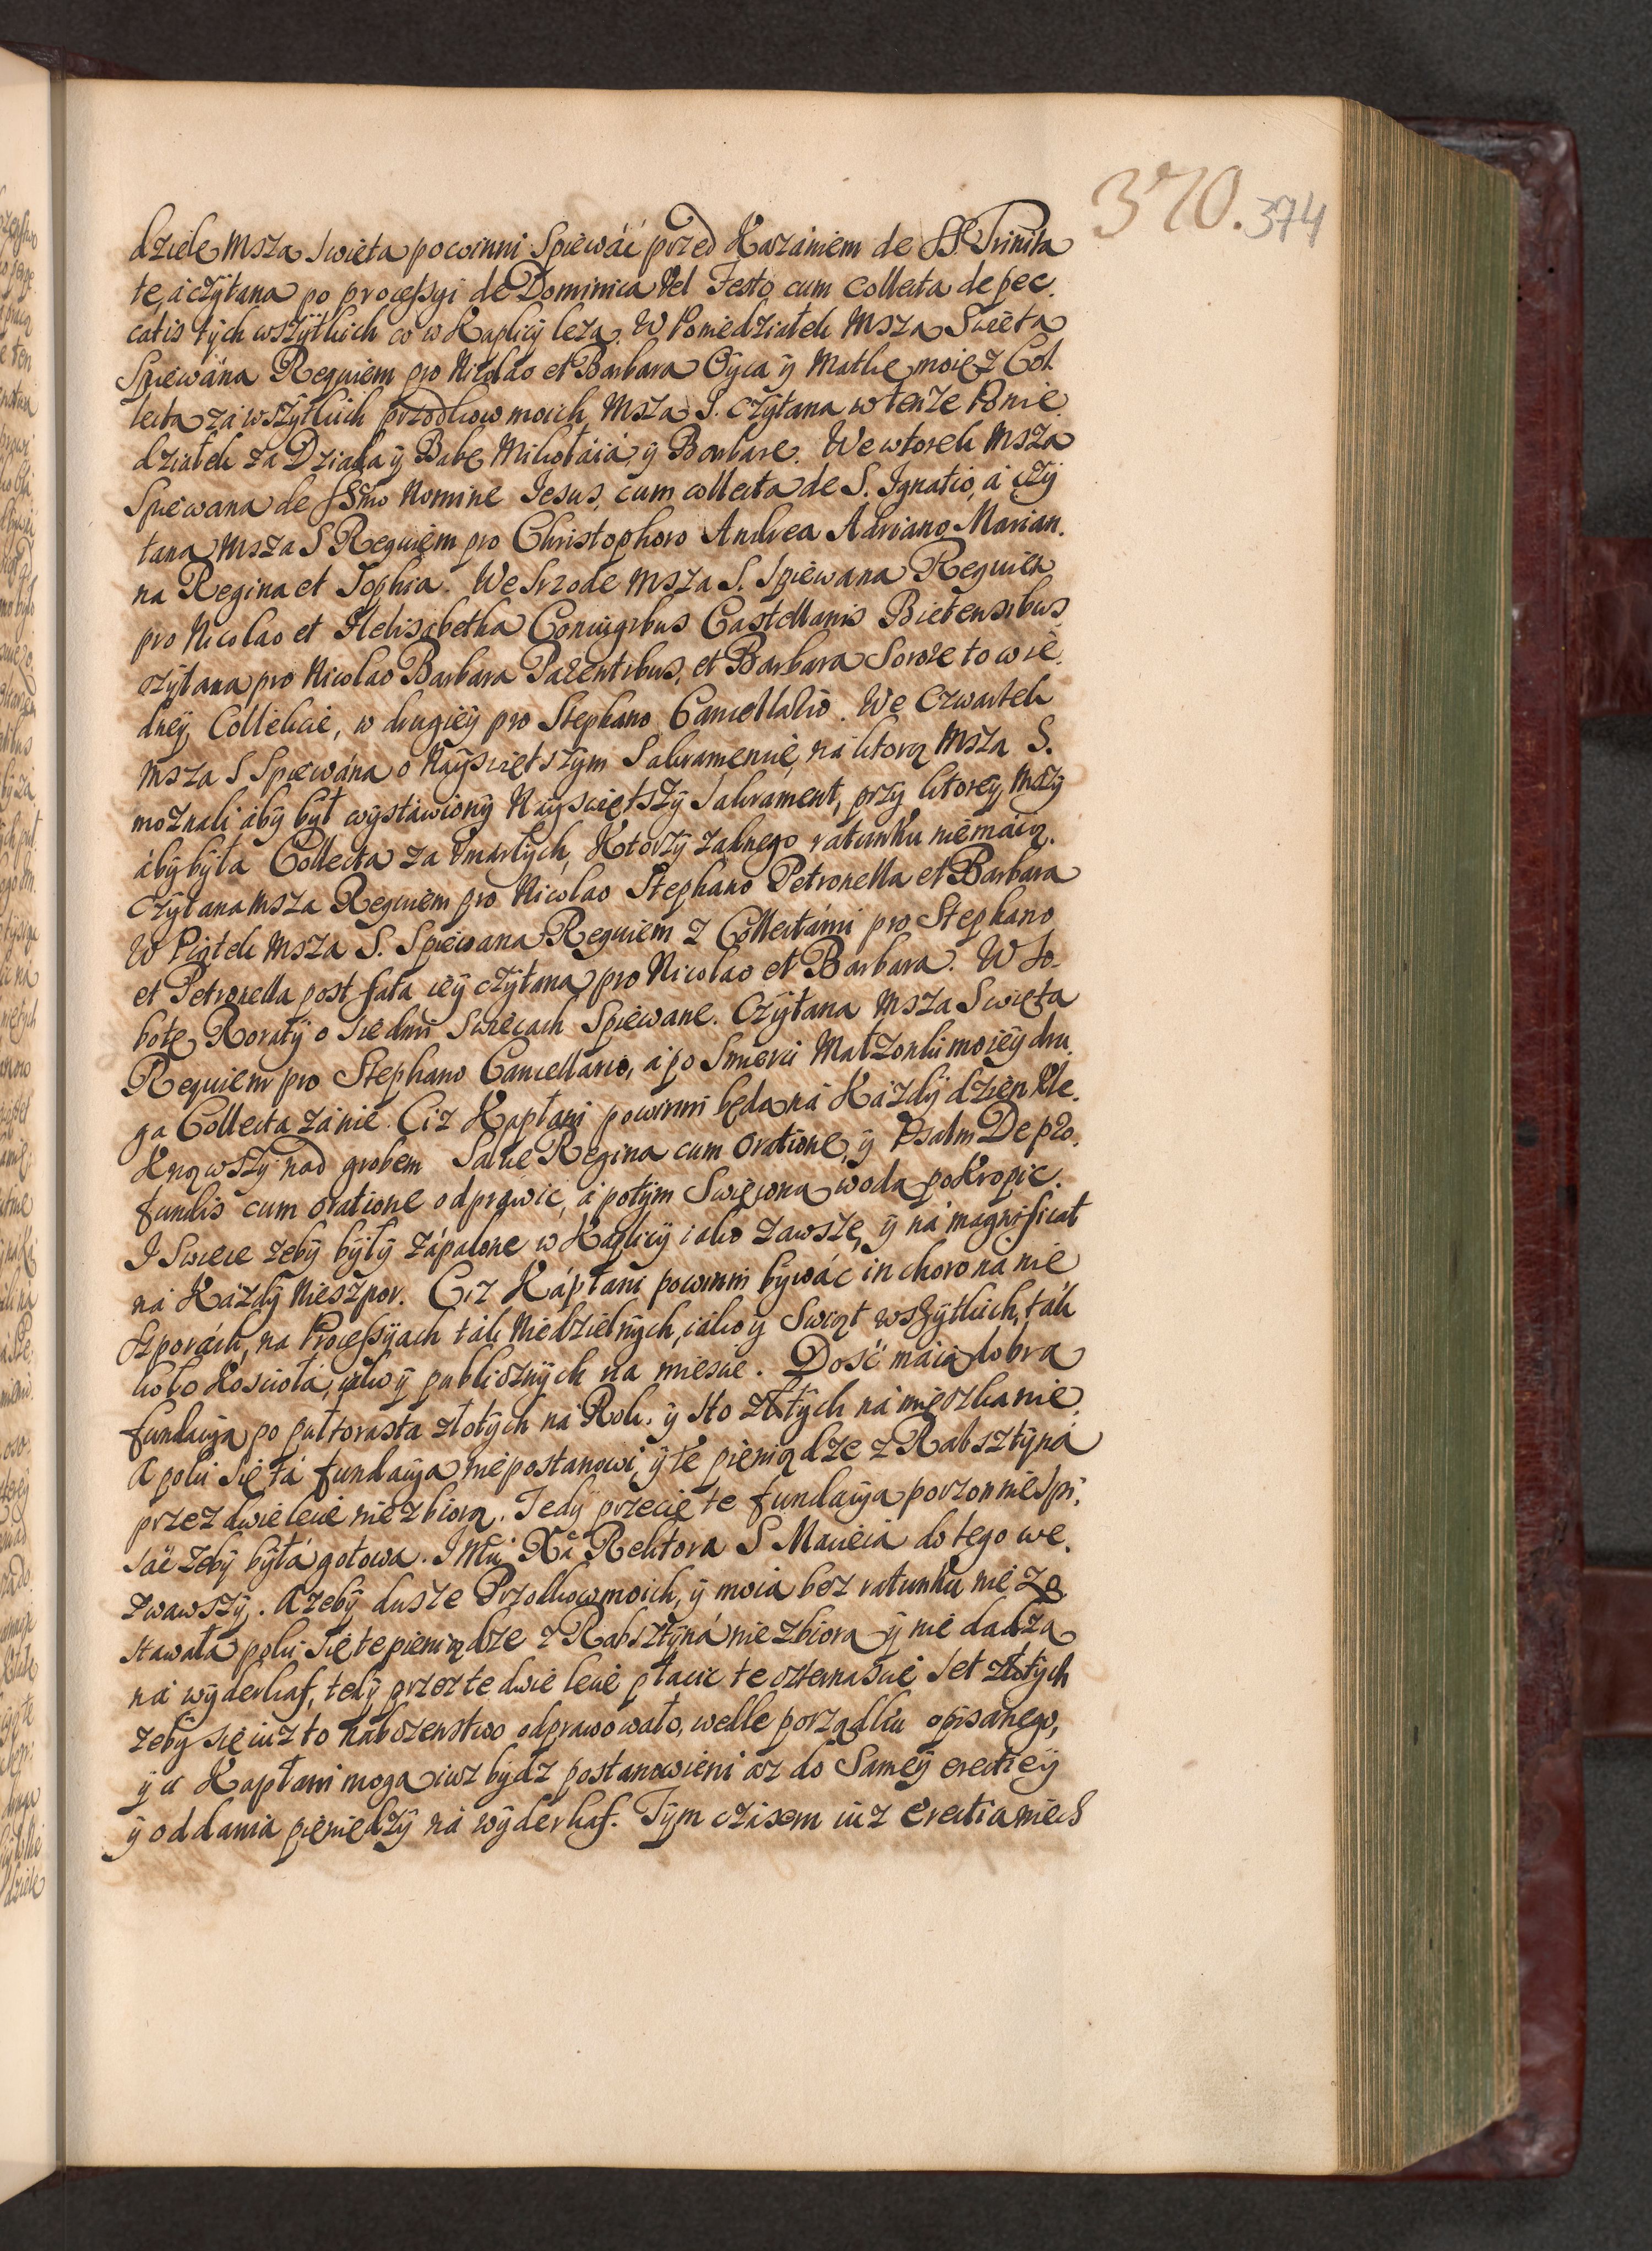 370. 374
dziele Msza Swieta powinni Spiewáć przed Kazániem de SS. Trinita
te, á czÿtana po proceſsyi de Dominica Vel Festo cum collecta de pec.
catis tÿch wszÿtkich co w Kaplicÿ leza. W Poniedziałek Msza Swieta
Spiewána Requiem pro Nicolao et Barbara Oÿca ÿ Matke moię z Col
lecta zá wszÿtkich przodkow moich, Msza S. czÿtana w tenze Ponie.
działek za Dziada ÿ Babę Mikołáiá, ÿ Barbarę. We wtorek Msza
Spiewana de SSmo Nomine Iesus, cum collecta de S. Ignatio, á czÿ
tana Msza S Requiem pro Christophoro Andrea Adriano Marian.
na Regina et Sophia. We Srzode Msza S. Spiewana Requiem
pro Nicolao et Helisabetha Coniugibus Castellanis Bietensibus
czÿtana pro Nicolao Barbara Parentibus, et Barbara Sorore to w ie.
dneÿ Collekcie, w drugieÿ pro Stephano Cancellario. We Czwartek
Msza S Spiewána o Naÿswiętszÿm Sakramencie, ná ktorą Msza S.
moznali abÿ bÿł wÿstáwionÿ Naÿswiętszÿ Sakrament, przÿ ktoreÿ Mszÿ
ábÿ bÿła Collecta za Vmarłÿch, Ktorzÿ zadnego ratunku niemáią.
Czÿtana Msza Requiem pro Nicolao Stephano Petronella et Barbara
W Piątek Msza S. Spiewana Requiem z Collectámi pro Stephano
et Petronella post fata ieÿ czÿtana pro Nicolao et Barbara. W So-
botę Roratÿ o siedmi Swiecach Spiewane. Czÿtana Msza Swięta
Requiem pro Stephano Cancellario, á po Smierci Małzonki moieÿ dru.
ga Collecta zá nie. Ciz Kapłani powinni będa ná Kázdÿ dzien kle.
Knąwszÿ nad grobem Salve Regina cum oratione, ÿ Psalm De pro.
fundis cum oratione odprawic, á potÿm Swięcona woda poKropic.
I Swiece zebÿ bÿłÿ zápalone w Kaplicÿ iako zawsze, ÿ ná magnificat
ná Kázdÿ Nieszpor. Ciz Kápłani powinni bÿwác in choro ná nie
szporách, na Proceſsÿach ták Niedzielnÿch, iako ÿ Swiąt wszÿtkich, ták
koło Kosciołá, iako ÿ publicznÿch na miescie. Dość máia dobra
fundacÿa po pułtorasta złotÿch ná Rok. ÿ sto złotÿch ná mieszkanie.
A poki się tá fundacÿa niepostanowi, ÿ te pieniądze z Rabsztÿná
przez dwie lecie niezbiorą. Tedÿ przecię te fundacÿa porzonnie spi.
sać zebÿ bÿłá gotowa. I Mci Xa Rektora S Macieia do tego we.
zwawszÿ. A zebÿ dusze Przodkow moich, ÿ moia bez ratunku nie zo.
stawała poki się te pieniądze z Rabsztÿná nie zbiora ÿ nie dadza
ná wÿderkaf, tedÿ przez te dwie lecie płacic te czternascie set złotÿch
zebÿ się iuz to nabozenstwo odprawowało, wedle porządku opisanego,
ÿ ci Kapłani moga iuz bÿdz postanowieni az do Sameÿ erectieÿ
ÿ oddania pieniedzÿ ná wÿderkaf. Tÿm czásem iuz Erectia niech